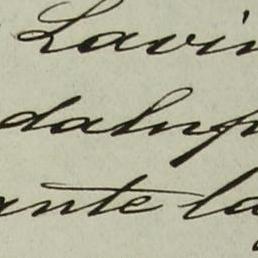 Lavin
dalup
ante la